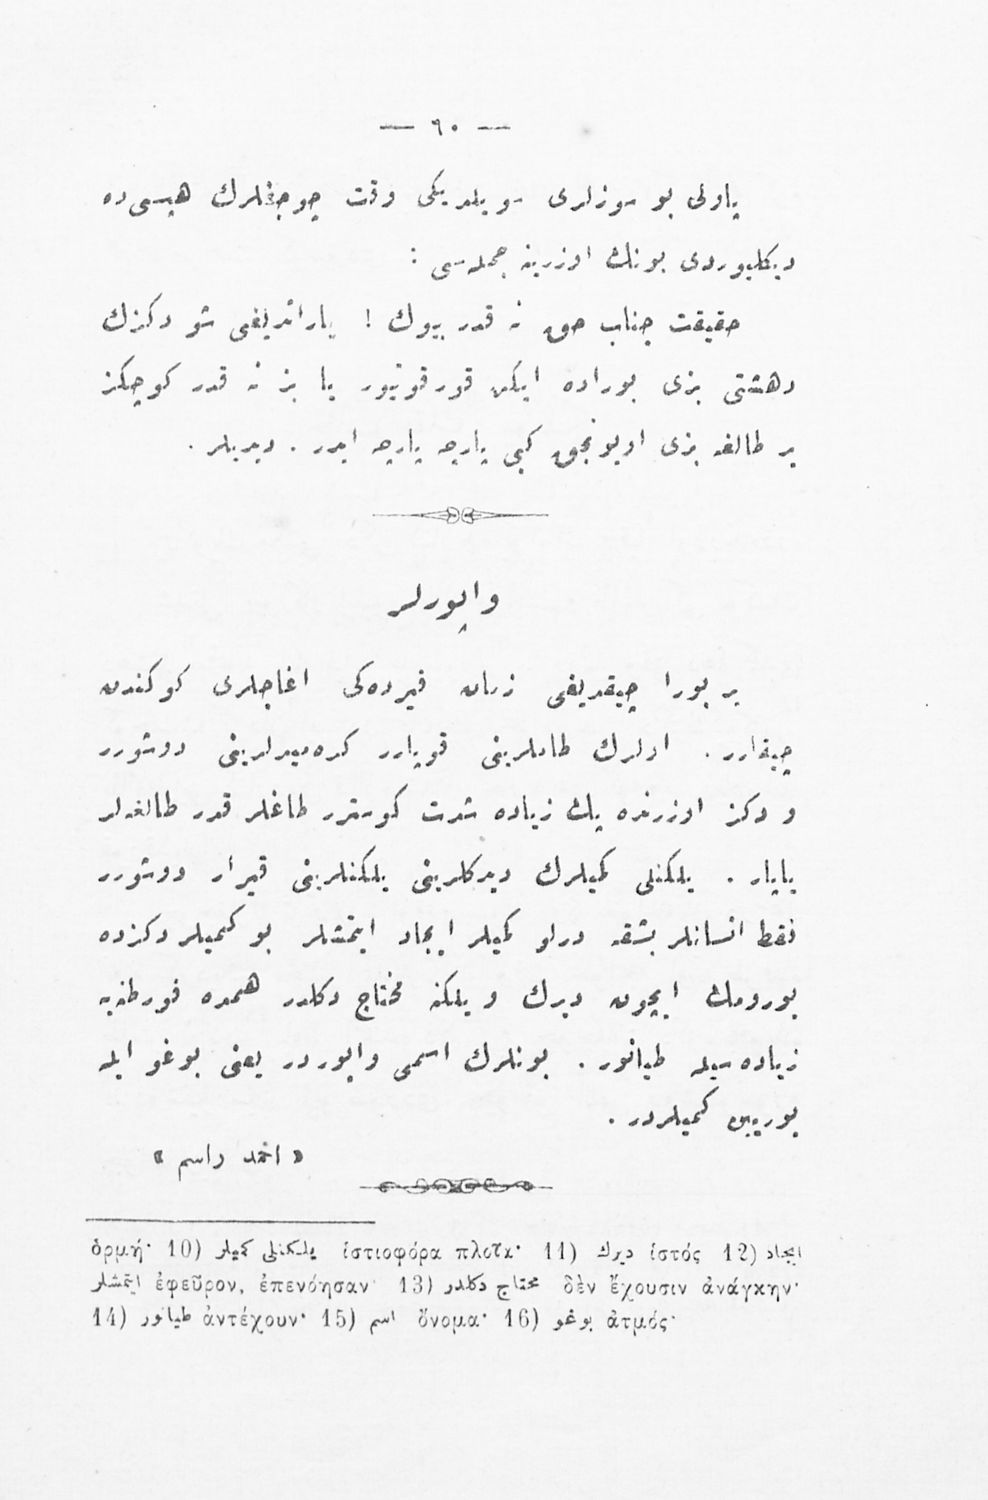 — ٦٠ —
پاولی بو سوزلری سویلدیكی وقت چوجقلرك هپسی ده
دیكلیوردی بونك اوزرینه جمله‌سی :
حقیقت جناب حق نه قدر بیوك ! یاراتدیغی شو دكزك
دهشتی بزی بوراده ایكن قورقوتیور یا بز نه قدر كوچكز
بر طالغه بزی اویونجق كبی پارچه پارچه ایدر . دیدیلر .
واپورلر
بر بورا چیقدیغی زمان قیرده‌كی اغاجلری كوكندن
چیقارر . اولرك طاملرینی قوپارر كره‌میدلرینی دوشورر
و دكز اوزرنده پك زیاده شدت كوسترر طاغلر قدر طالغه‌لر
یاپار . یلكنلی كمیلرك دیركلرینی یلكنلرینی قیرار دوشورر
فقط انسانلر بشقه درلو كمیلر ایجاد ایتمشلر بو كمیلر دكزده
یورومك ایچون دیرك و یلكنه محتاج دكلدر همده فورطنه‌یه
زیاده‌سیله طیانور . بونلرك اسمی واپوردر یعنی بوغو ایله
یورین كمیلردر .
« احمد راسم »
ὁρμή· 10) یلكنلی كمیلر ἱστιοφόρα πλοῖα· 11) دیرك ἱστός 12) ایجاد
ایتمشلر ἐφεῦρον, ἐπενόησαν· 13) محتاج دكلدر δὲν ἔχουσιν ἀνάγκην·
14) طیانور ἀντέχουν· 15) اسم ὄνομα· 16) بوغو ἀτμός·